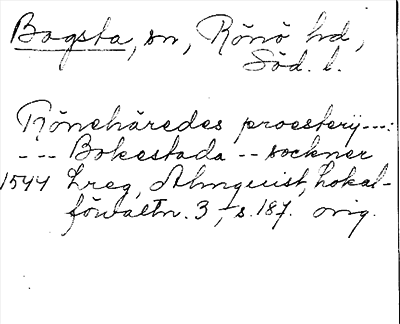 Bogsta, sn, Rönö hd,
Söd. l.
Röneháredes proesterij---:
--- Bokestada -- sockner
1544 Lreg, Almquist, Lokal-
förvaltn. 3, s. 187. orig.